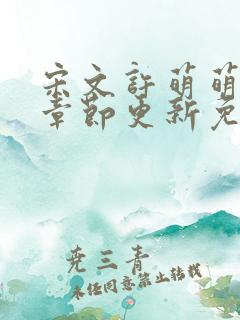 宋文許萌萌
章節更新免
堯三青
未经同意禁止转载